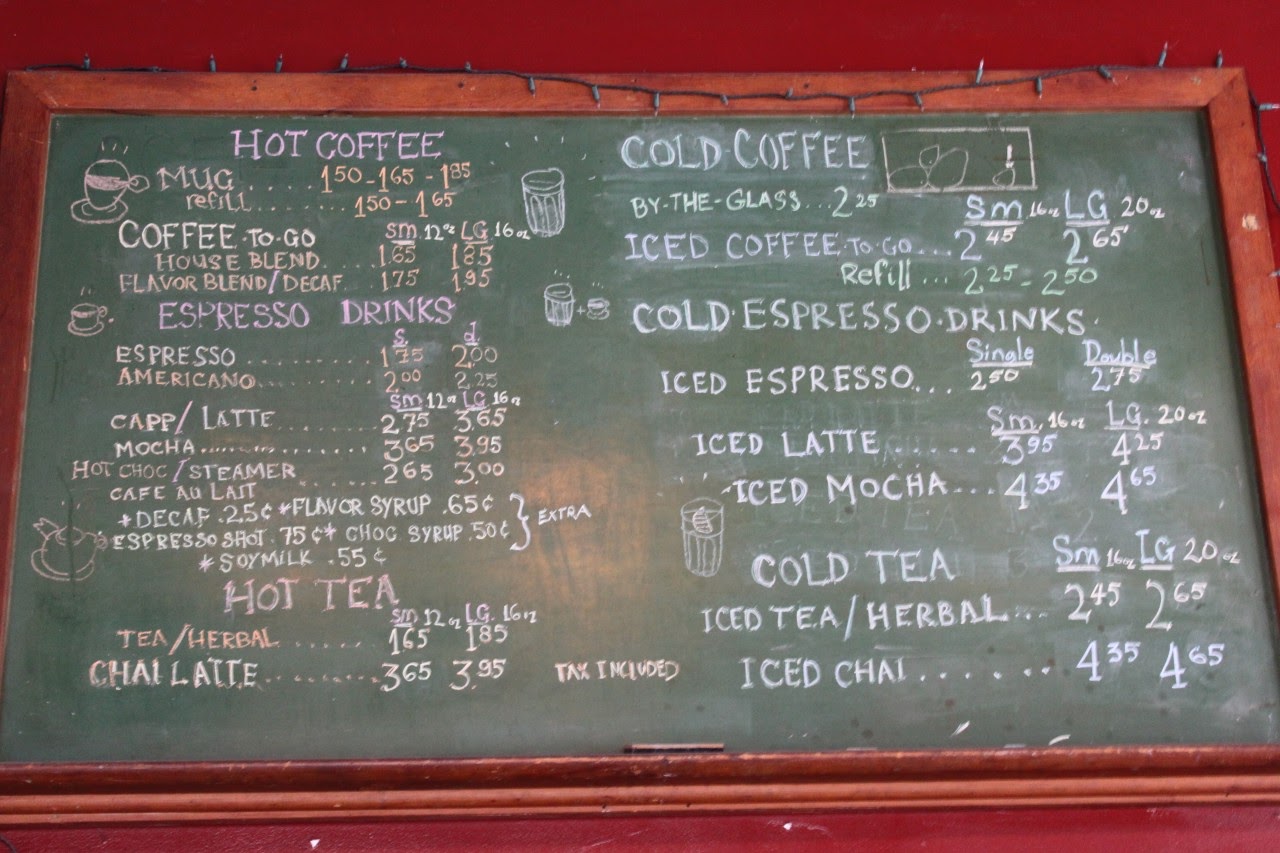 HOT COFFEE
MUG ..... 1 50 - 1 65 - 1 85
refill ....... 1 50 - 1 65
COFFEE-TO-GO sm. 12oz LG 16oz
HOUSE BLEND. 1.65 1.85
FLAVOR BLEND/DECAF. 1.75 1.95
ESPRESSO DRINKS
s. d
ESPRESSO .......... 1 75 2.00
AMERICANO.......... 2 00 2.25
Sm 12oz LG 16oz
CAPP/LATTE ......... 2 75 3.65
MOCHA ............ 3 65 3.95
HOT CHOC/STEAMER ....... 2 65 3.00
CAFE AU LAIT
+DECAF .25¢ *FLAVOR SYRUP .65¢
ESPRESSO SHOT .75¢* CHOC SYRUP .50¢ } EXTRA
*SOYMILK .55¢
HOT TEA
sm 12oz LG. 16oz
TEA/HERBAL ...... 1 65 1 85
CHAI LATTE.......... 3 65 3.95
TAX INCLUDED
COLD COFFEE
BY-THE-GLASS...2 25
Sm 16oz LG 20oz
ICED COFFEE-TO-GO...2 45 2 65
Refill ... 2 25 - 2 50
COLD·ESPRESSO·DRINKS·
Single Double
ICED ESPRESSO... 2 50 2.75
Sm. 16oz LG. 20oz
ICED LATTE ...... 3 95 4 25
ICED MOCHA... 4 35 4 65
COLD TEA Sm 16oz LG 20oz
ICED TEA/HERBAL... 2 45 2 65
ICED CHAI...... 4 35 4 65